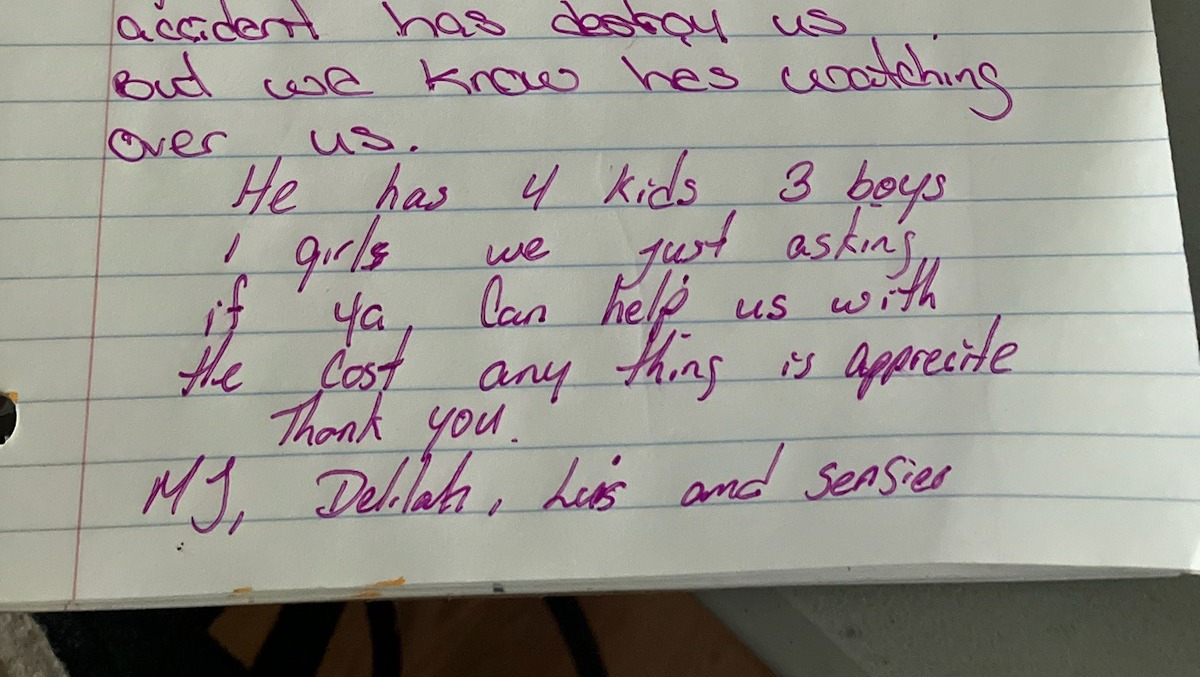 accident has destroy us
But we know hes watching
over us.
He has 4 kids 3 boys
1 girls we just asking
if ya, Can help us with
the Cost any thing is apprecite
Thank you.
MJ, Delilah, Luis and Sensier